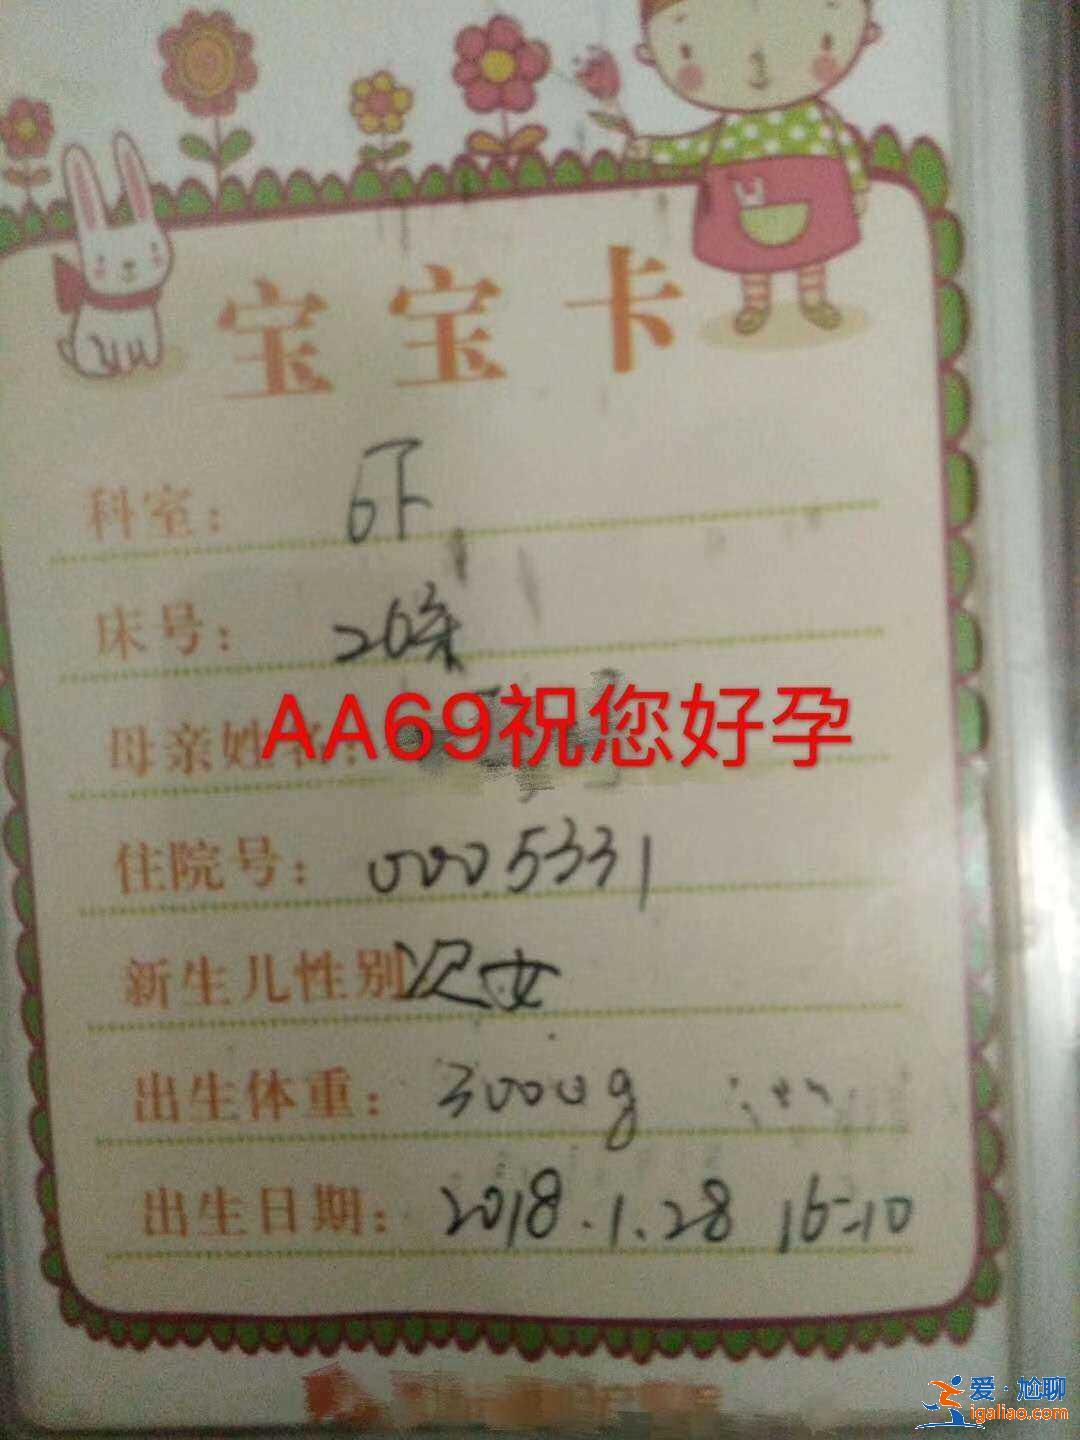 宝宝卡
科室：6下
床号：26床
母亲姓名：
AA69祝您好孕
住院号：0005331
新生儿性别 次女
出生体重：3000g
出生日期：2018.1.28 16:10
爱·尬聊
igaliao.com